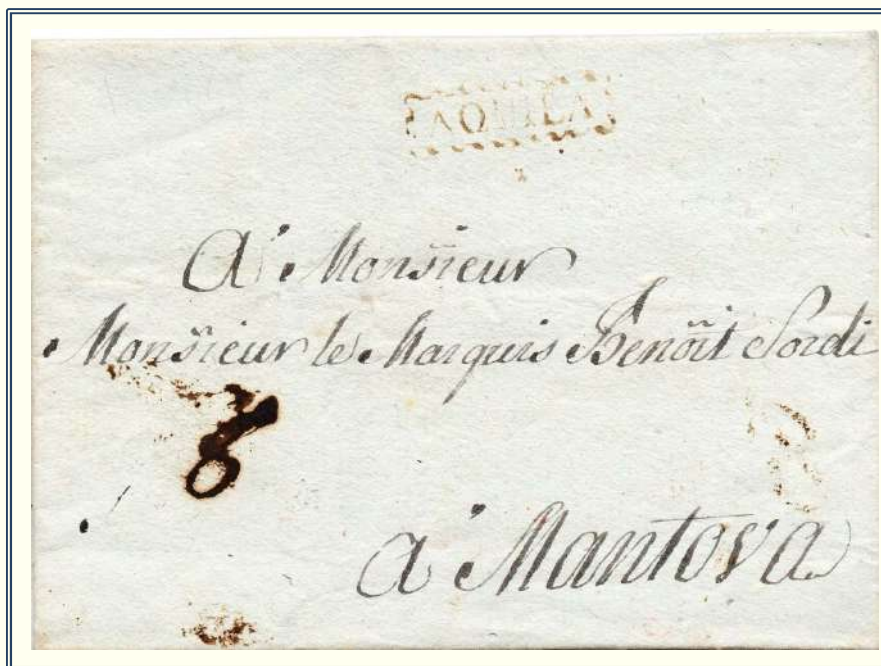 AQUILA
A Monsieur
Monsieur le Marquis Benoit Sordi
8
à Mantova